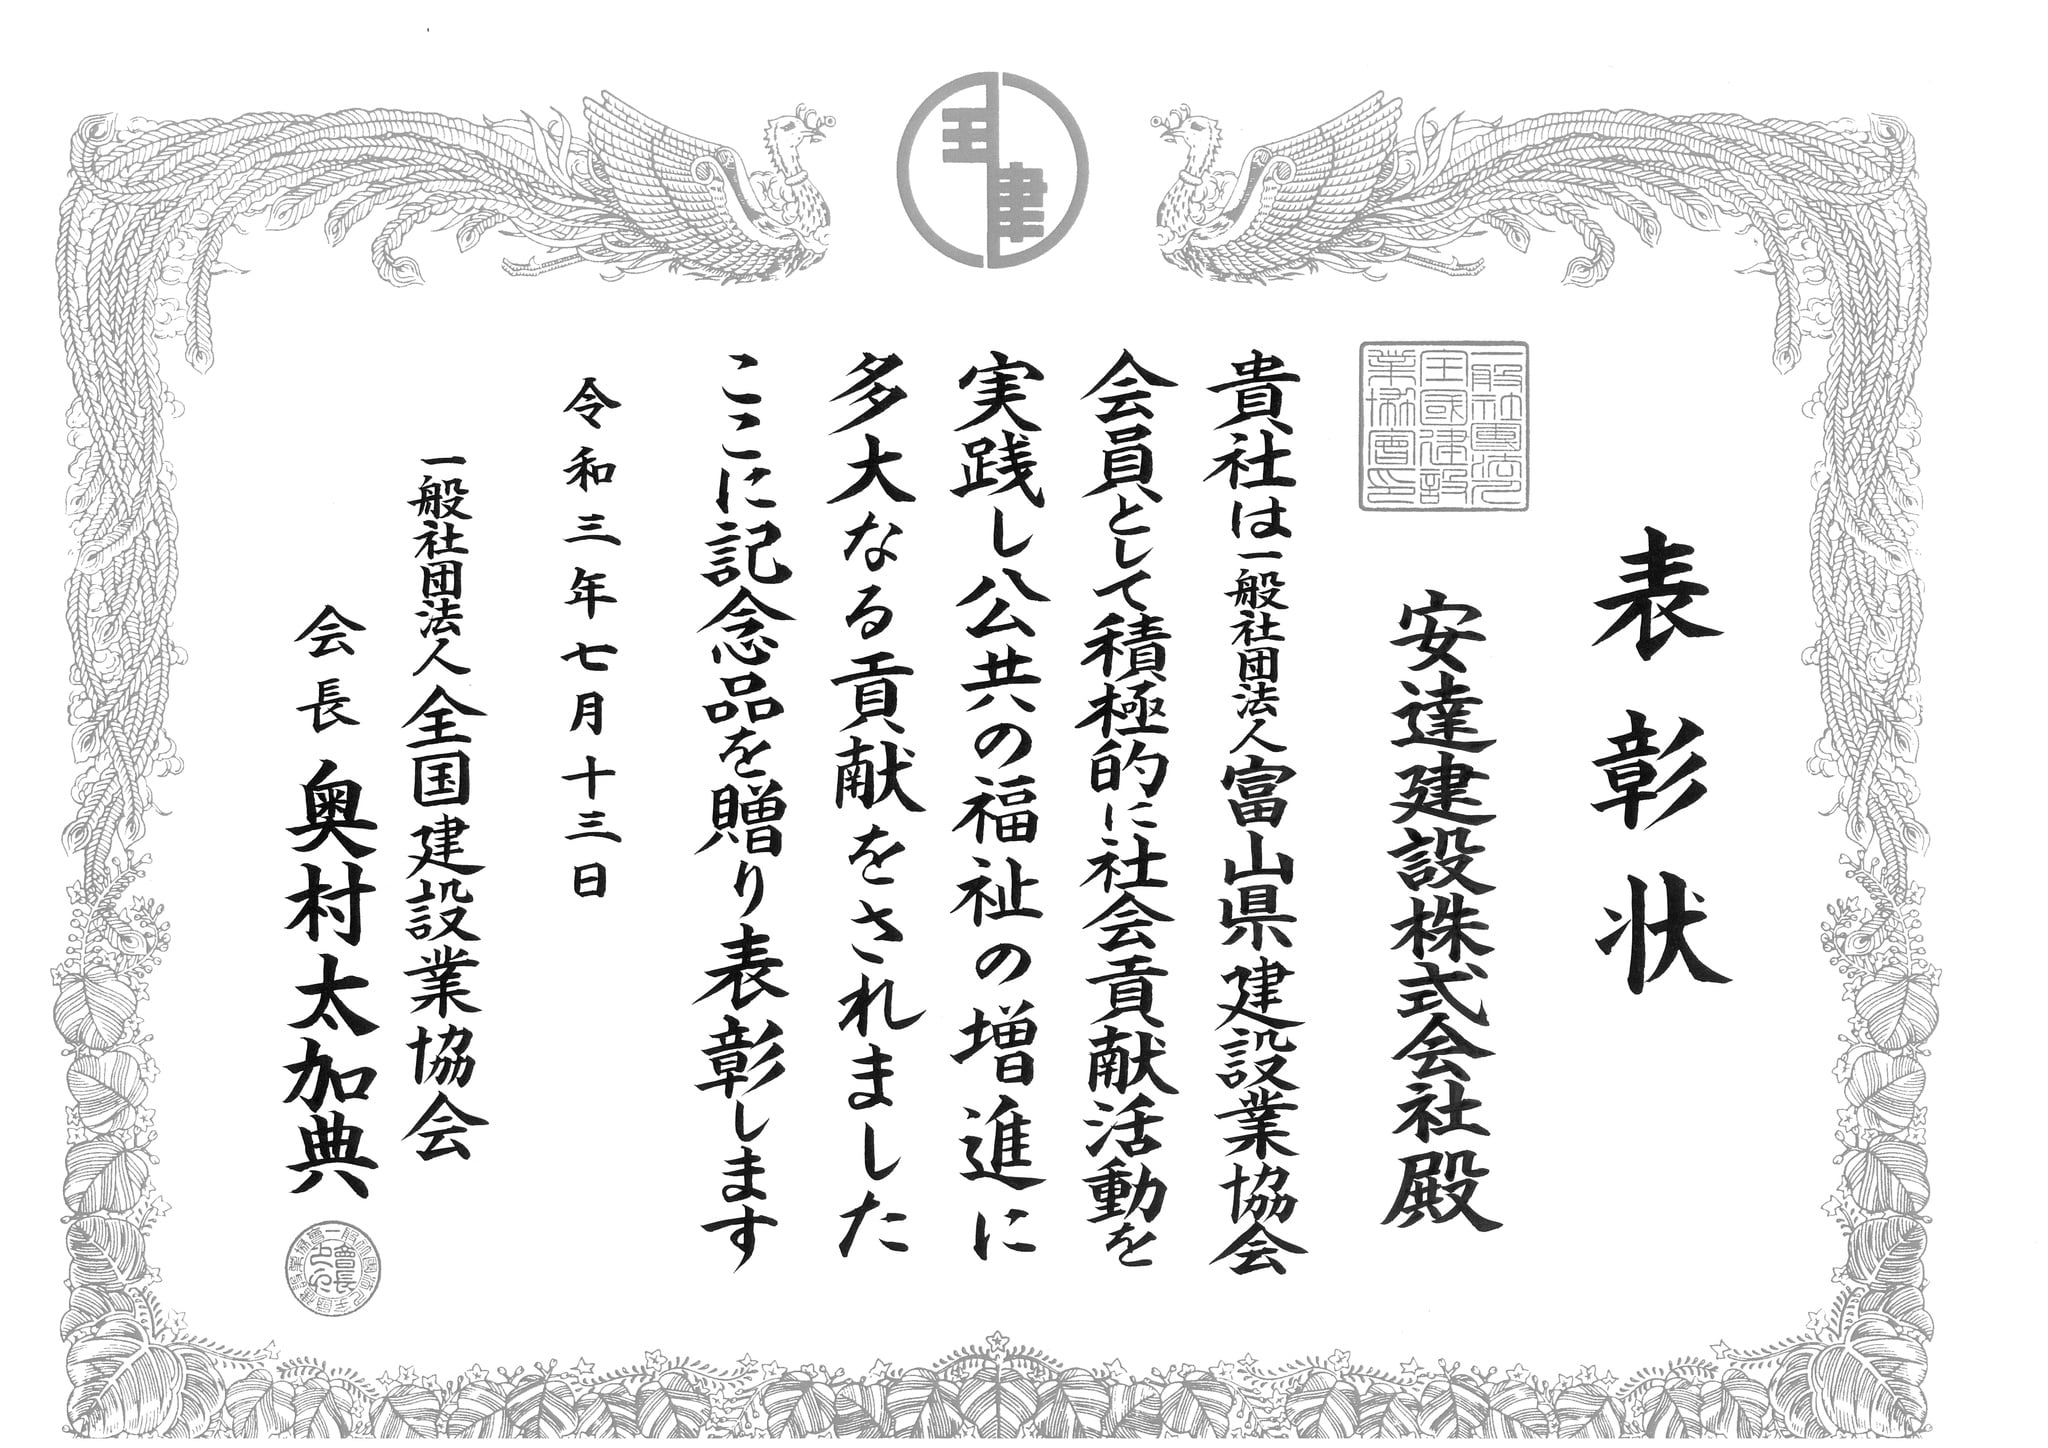 表彰状
安達建設株式会社殿
一般社団法人
全国建設
業協会印
貴社は一般社団法人富山県建設業協会
会員として積極的に社会貢献活動を
実践し公共の福祉の増進に
多大なる貢献をされました
ここに記念品を贈り表彰します
令和三年七月十三日
一般社団法人全国建設業協会
会長 奥村太加典